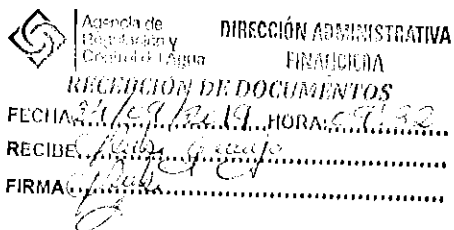 Agencia de
Regulación y
Control del Agua
DIRECCIÓN ADMINISTRATIVA
FINANCIERA
RECEPCIÓN DE DOCUMENTOS
FECHA 24/09/2019 HORA: 09:32
RECIBE
FIRMA